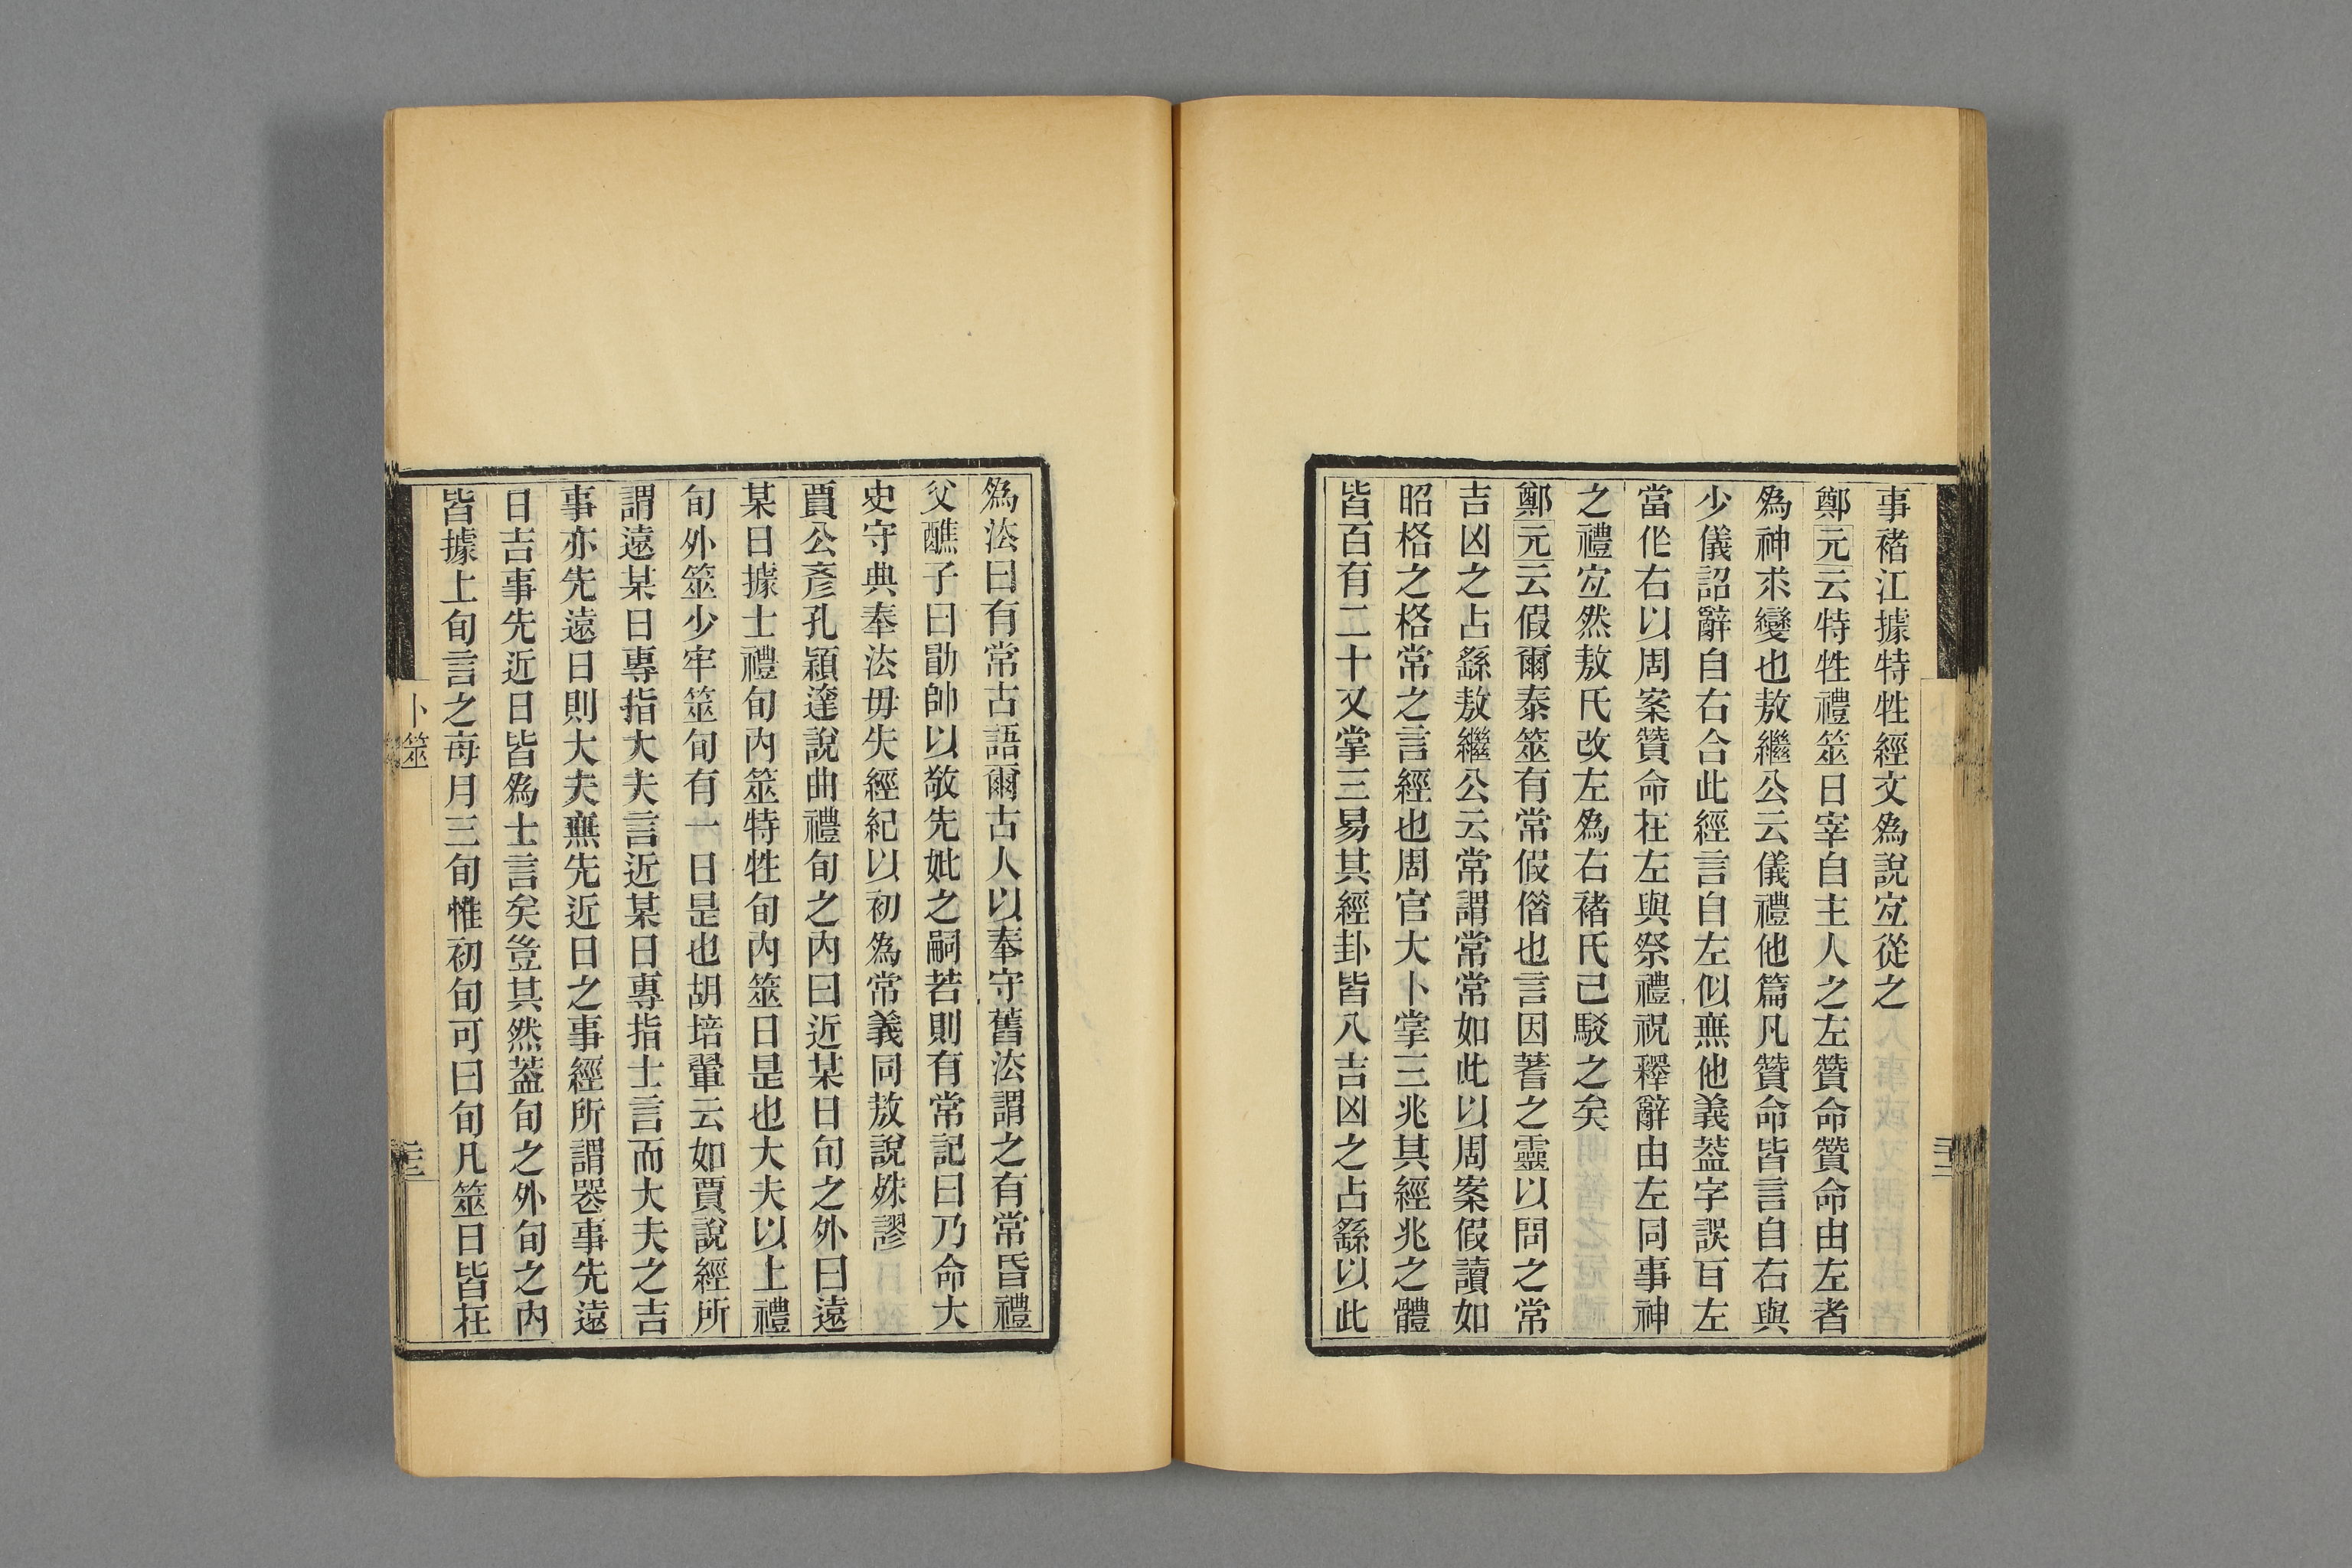 事褚江據特牲經文爲說宐從之
鄭元云特牲禮筮日宰自主人之左贊命贊命由左者
爲神求變也敖繼公云儀禮他篇凡贊命皆言自右與
少儀詔辭自右合此經言自左似無他義葢字誤百左
當作右以周案贊命在左與祭禮祝釋辭由左同事神
之禮宐然敖氏改左爲右褚氏已駁之矣
鄭元云假爾泰筮有常假僭也言因蓍之靈以問之常
吉凶之占繇敖繼公云常謂常常如此以周案假讀如
昭格之格常之言經也周官大卜掌三兆其經兆之體
皆百有二十又掌三易其經卦皆八吉凶之占繇以此
爲法曰有常古語爾古人以奉守舊法謂之有常昏禮
父醮子曰勖帥以敬先妣之嗣若則有常記曰乃命大
史守典奉法毋失經紀以初爲常義同敖說殊謬
賈公彥孔穎達說曲禮旬之內曰近某日旬之外曰遠
某日據士禮旬內筮特牲旬內筮日是也大夫以上禮
旬外筮少牢筮旬有一日是也胡培翬云如賈說經所
謂遠某日專指大夫言近某日專指士言而大夫之吉
事亦先遠日則大夫無先近日之事經所謂喪事先遠
日吉事先近日皆爲士言矣豈其然葢旬之外旬之內
皆據上旬言之每月三旬惟初旬可曰旬凡筮日皆在
卜筮